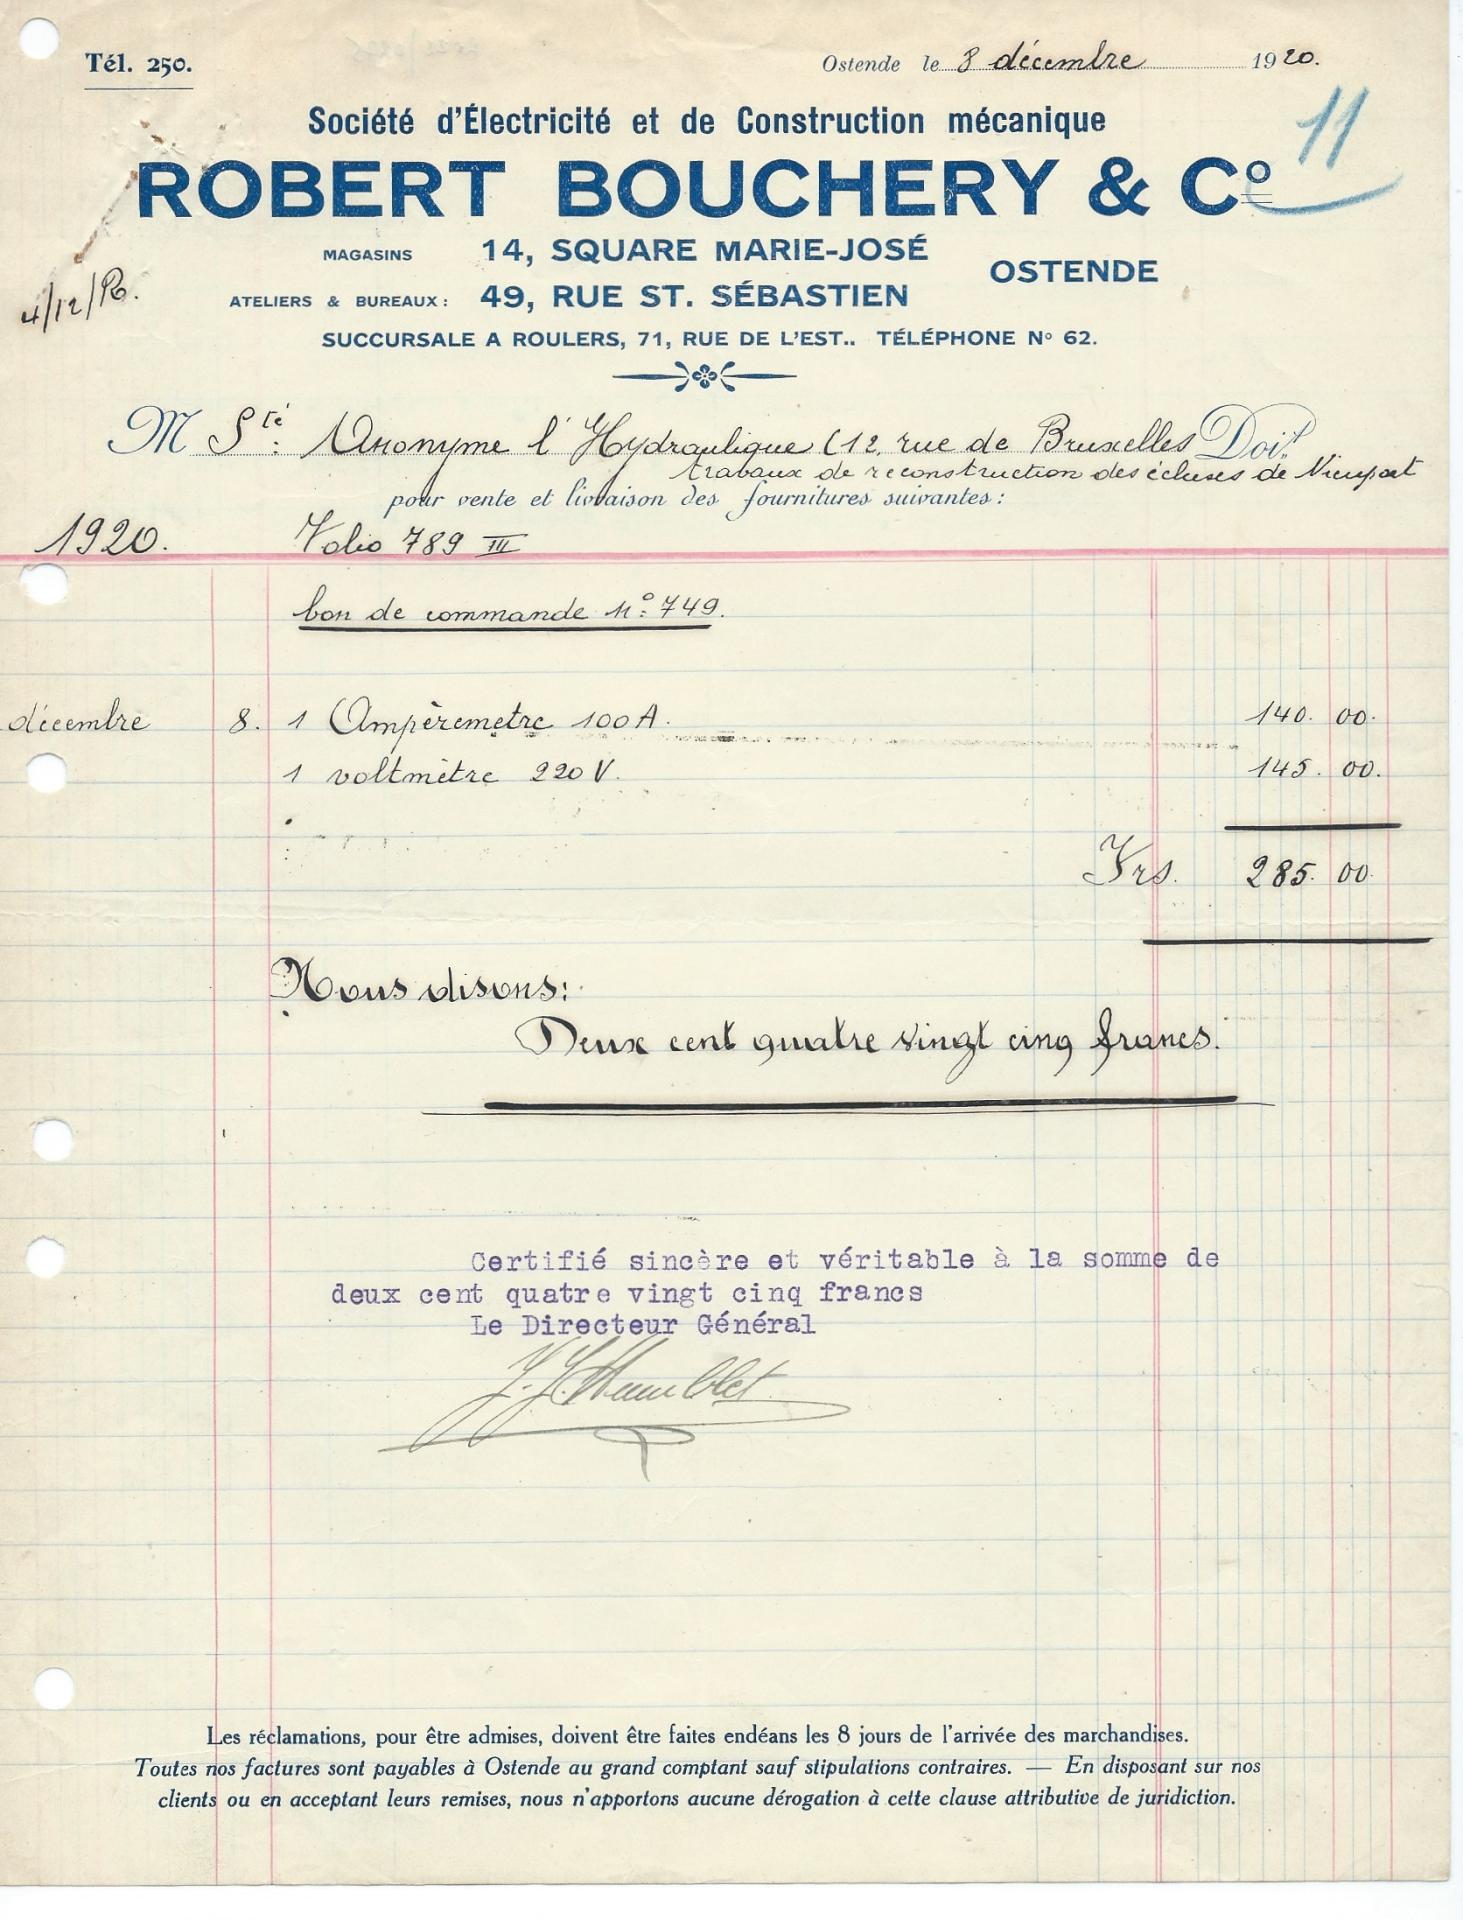 Tél. 250.
Ostende le 8 décembre 1920.
11
Société d'Électricité et de Construction mécanique
ROBERT BOUCHERY & Cº
MAGASINS 14, SQUARE MARIE-JOSÉ
OSTENDE
ATELIERS & BUREAUX: 49, RUE ST. SÉBASTIEN
4/12/
SUCCURSALE A ROULERS, 71, RUE DE L'EST.. TÉLÉPHONE Nº 62.
M Sté: Anonyme l'Hydraulique (12, rue de Bruxelles Doit
travaux de reconstruction des écluses de Nieuport
pour vente et livraison des fournitures suivantes:
1920. Folio 789 III
bon de commande nº: 749.
décembre 8. 1 Ampèremetre 100 A. 140. 00.
1 voltmètre 220 V. 145. 00.
Frs. 285. 00.
Nous disons:
Deux cent quatre vingt cinq francs.
Certifié sincère et véritable à la somme de
deux cent quatre vingt cinq francs
Le Directeur Général
J. J. Humblet
Les réclamations, pour être admises, doivent être faites endéans les 8 jours de l'arrivée des marchandises.
Toutes nos factures sont payables à Ostende au grand comptant sauf stipulations contraires. — En disposant sur nos
clients ou en acceptant leurs remises, nous n'apportons aucune dérogation à cette clause attributive de juridiction.